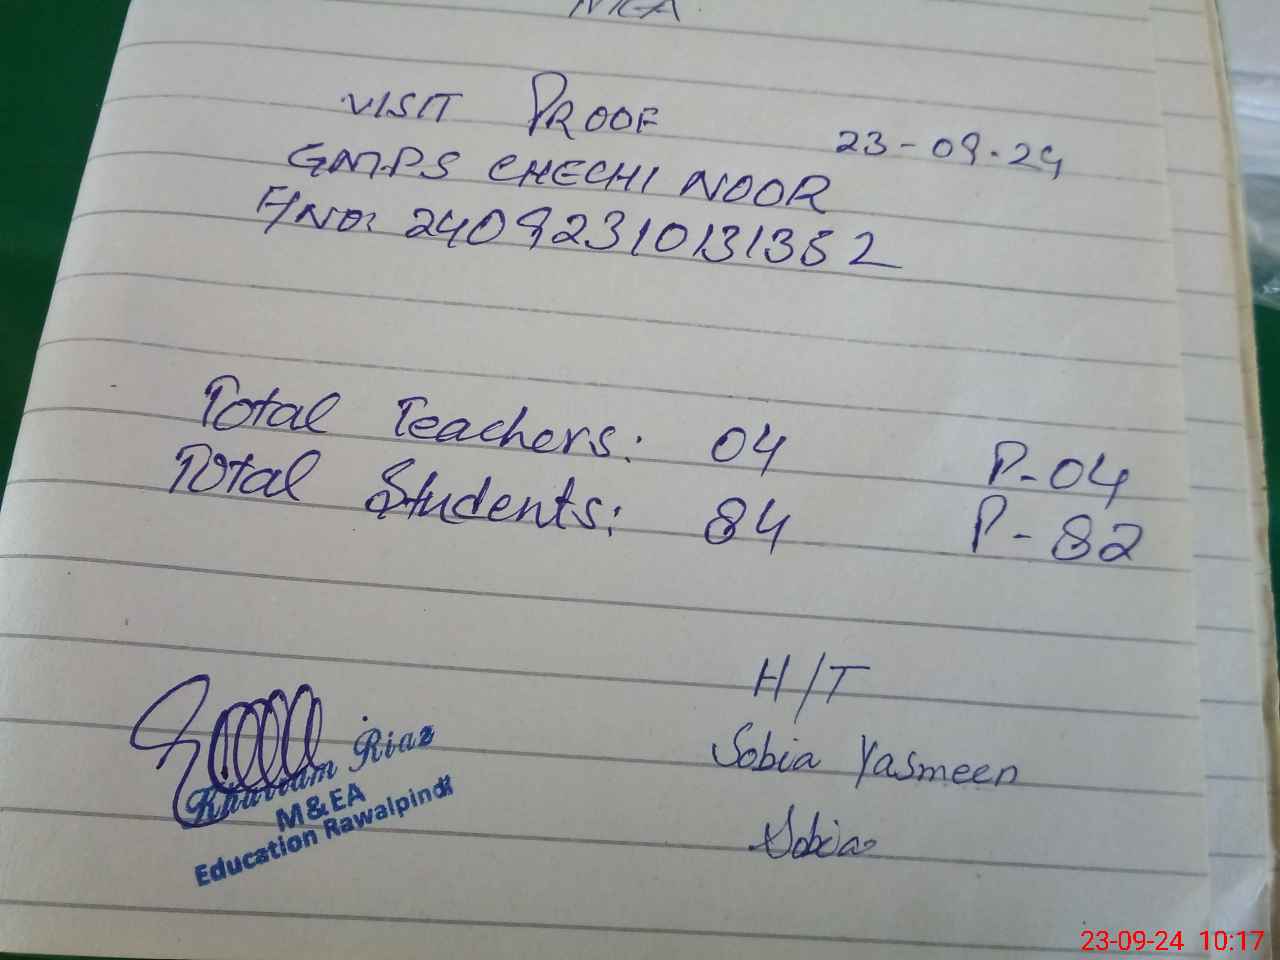 MEA
VISIT PROOF 23-09-24
GMPS CHECHI NOOR
F/NO: 24092310131352
Total Teachers: 04 P-04
Total Students: 84 P-82
H/T
Sobia Yasmeen
Sobia
Khurram Riaz
M&EA
Education Rawalpindi
23-09-24 10:17